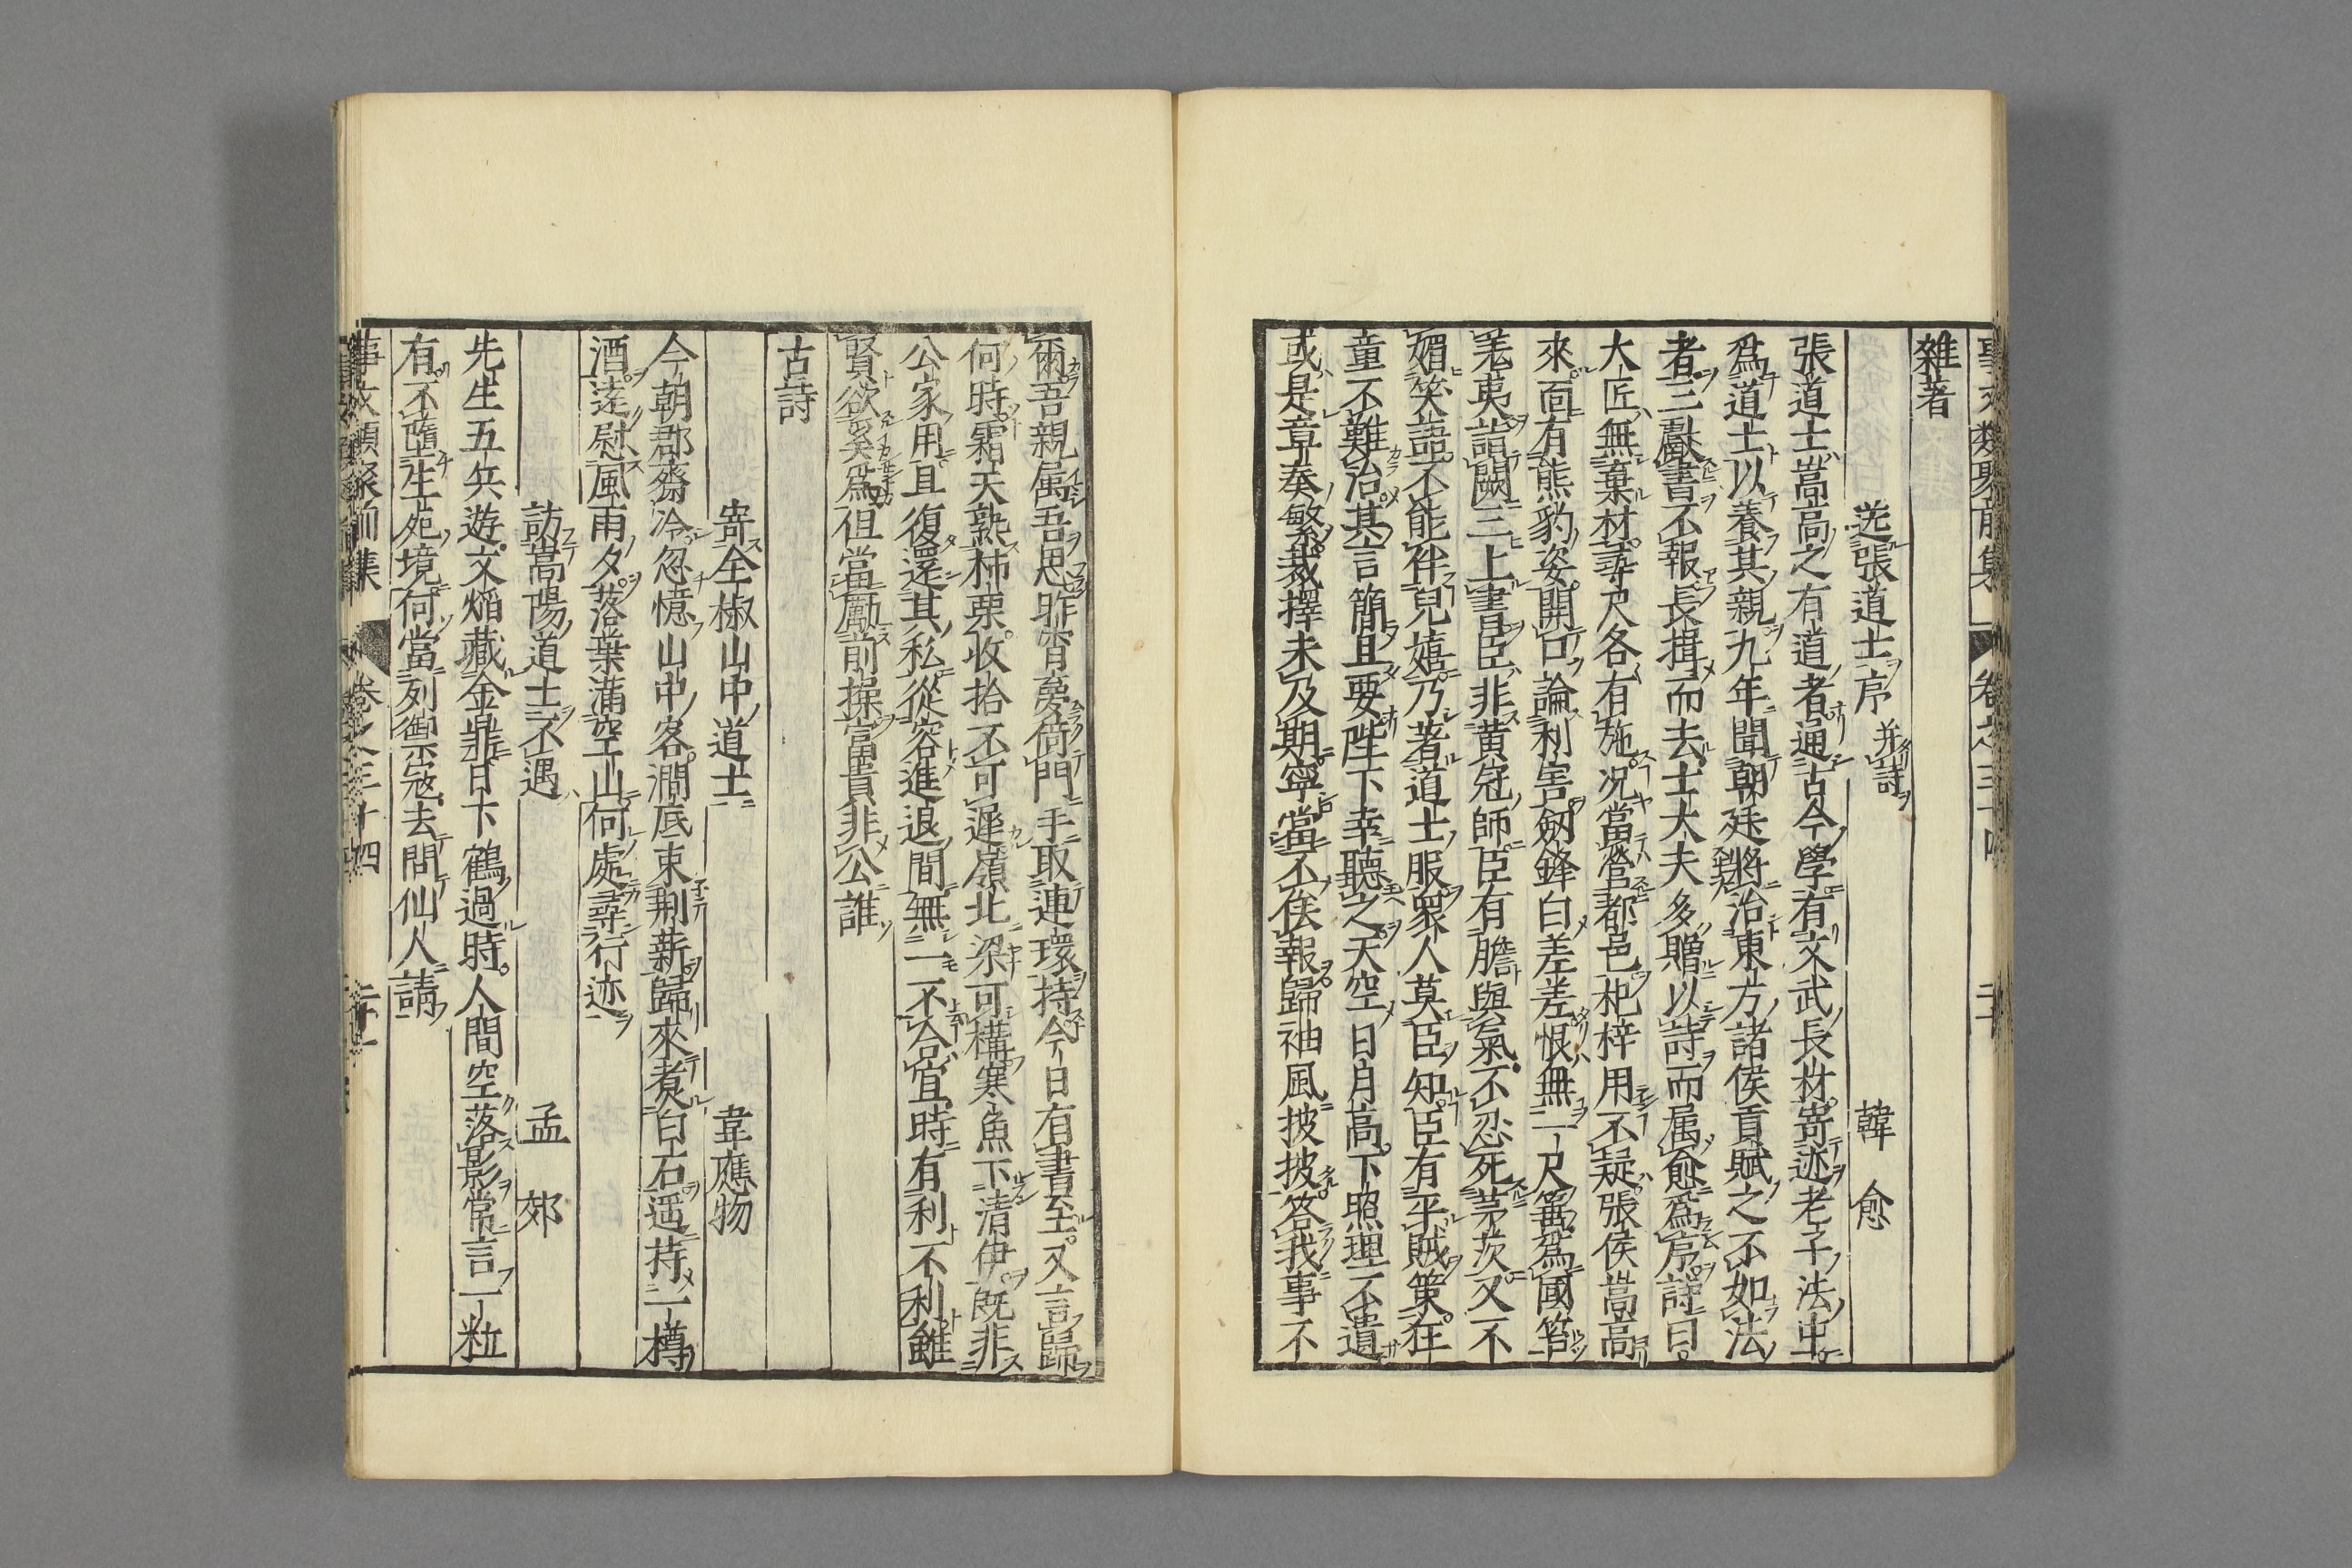 雜著
送張道士序 并詩 韓愈
張道士嵩高之有道者通古今學有文武長材寄迹老子法中
爲道士以養其親九年聞朝廷將治東方諸侯貢賦之不如法
者三獻書不報長揖而去士大夫多贈以詩而属愈爲序詩曰
大匠無棄材尋尺各有施况當營都邑杞梓用不疑張侯嵩高
來面有熊豹姿開口論利害劒鋒白差差恨無一尺箠爲國笞
羌夷詣闕三上書臣非黄冠師臣有膽與氣不忍死茅茨又不
媚笑語不能伴兒嬉乃著道士服衆人莫臣知臣有平賊策狂
童不難治其言簡且要陛下幸聽之天空日月高下照理不遺
或是章奏繁裁擇未及期寧當不俟報歸袖風披披答我事不
爾吾親属吾思昨宵夢倚門手取連環持今日有書至又言歸
何時霜天熟柿栗收拾不可遲嶺北梁可構寒魚下清伊既非
公家用且復還其私從容進退間無一不合宜時有利不利雖
賢欲奚爲但當勵前操富貴非公誰
古詩
寄全椒山中道士 韋應物
今朝郡齋冷忽憶山中客澗底束荆薪歸來煮白石遥持一樽
酒遠慰風雨夕落葉滿空山何處尋行迹
訪嵩陽道士不遇 孟郊
先生五兵遊文焰藏金鼎日下鶴過時人間空落影常言一粒
有不墮生死境何當列禦冦去問仙人請
事文類聚前集 卷之三十四